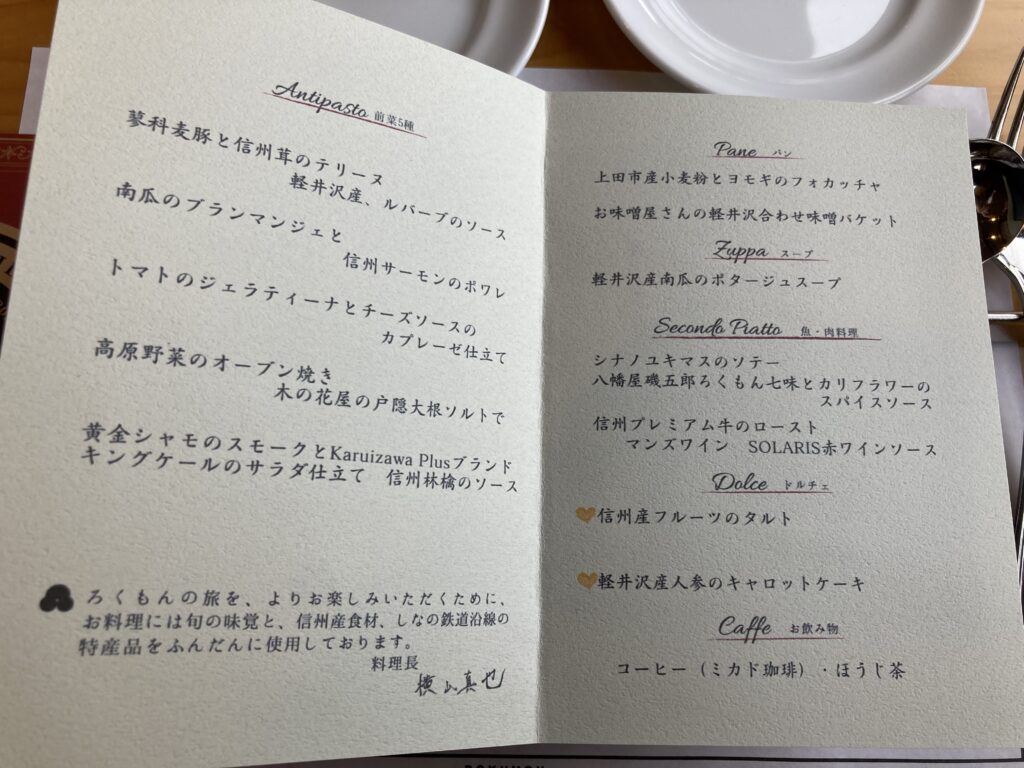 Antipasto 前菜5種
蓼科麦豚と信州茸のテリーヌ
軽井沢産、ルバーブのソース
南瓜のブランマンジェと
信州サーモンのポワレ
トマトのジェラティーナとチーズソースの
カプレーゼ仕立て
高原野菜のオーブン焼き
木の花屋の戸隠大根ソルトで
黄金シャモのスモークとKaruizawa Plusブランド
キングケールのサラダ仕立て 信州林檎のソース
ろくもんの旅を、よりお楽しみいただくために、
お料理には旬の味覚と、信州産食材、しなの鉄道沿線の
特産品をふんだんに使用しております。
料理長
横山真也
Pane パン
上田市産小麦粉とヨモギのフォカッチャ
お味噌屋さんの軽井沢合わせ味噌バケット
Zuppa スープ
軽井沢産南瓜のポタージュスープ
Secondo Piatto 魚・肉料理
シナノユキマスのソテー
八幡屋礒五郎ろくもん七味とカリフラワーの
スパイスソース
信州プレミアム牛のロースト
マンズワイン SOLARIS赤ワインソース
Dolce ドルチェ
信州産フルーツのタルト
軽井沢産人参のキャロットケーキ
Caffe お飲み物
コーヒー（ミカド珈琲）・ほうじ茶